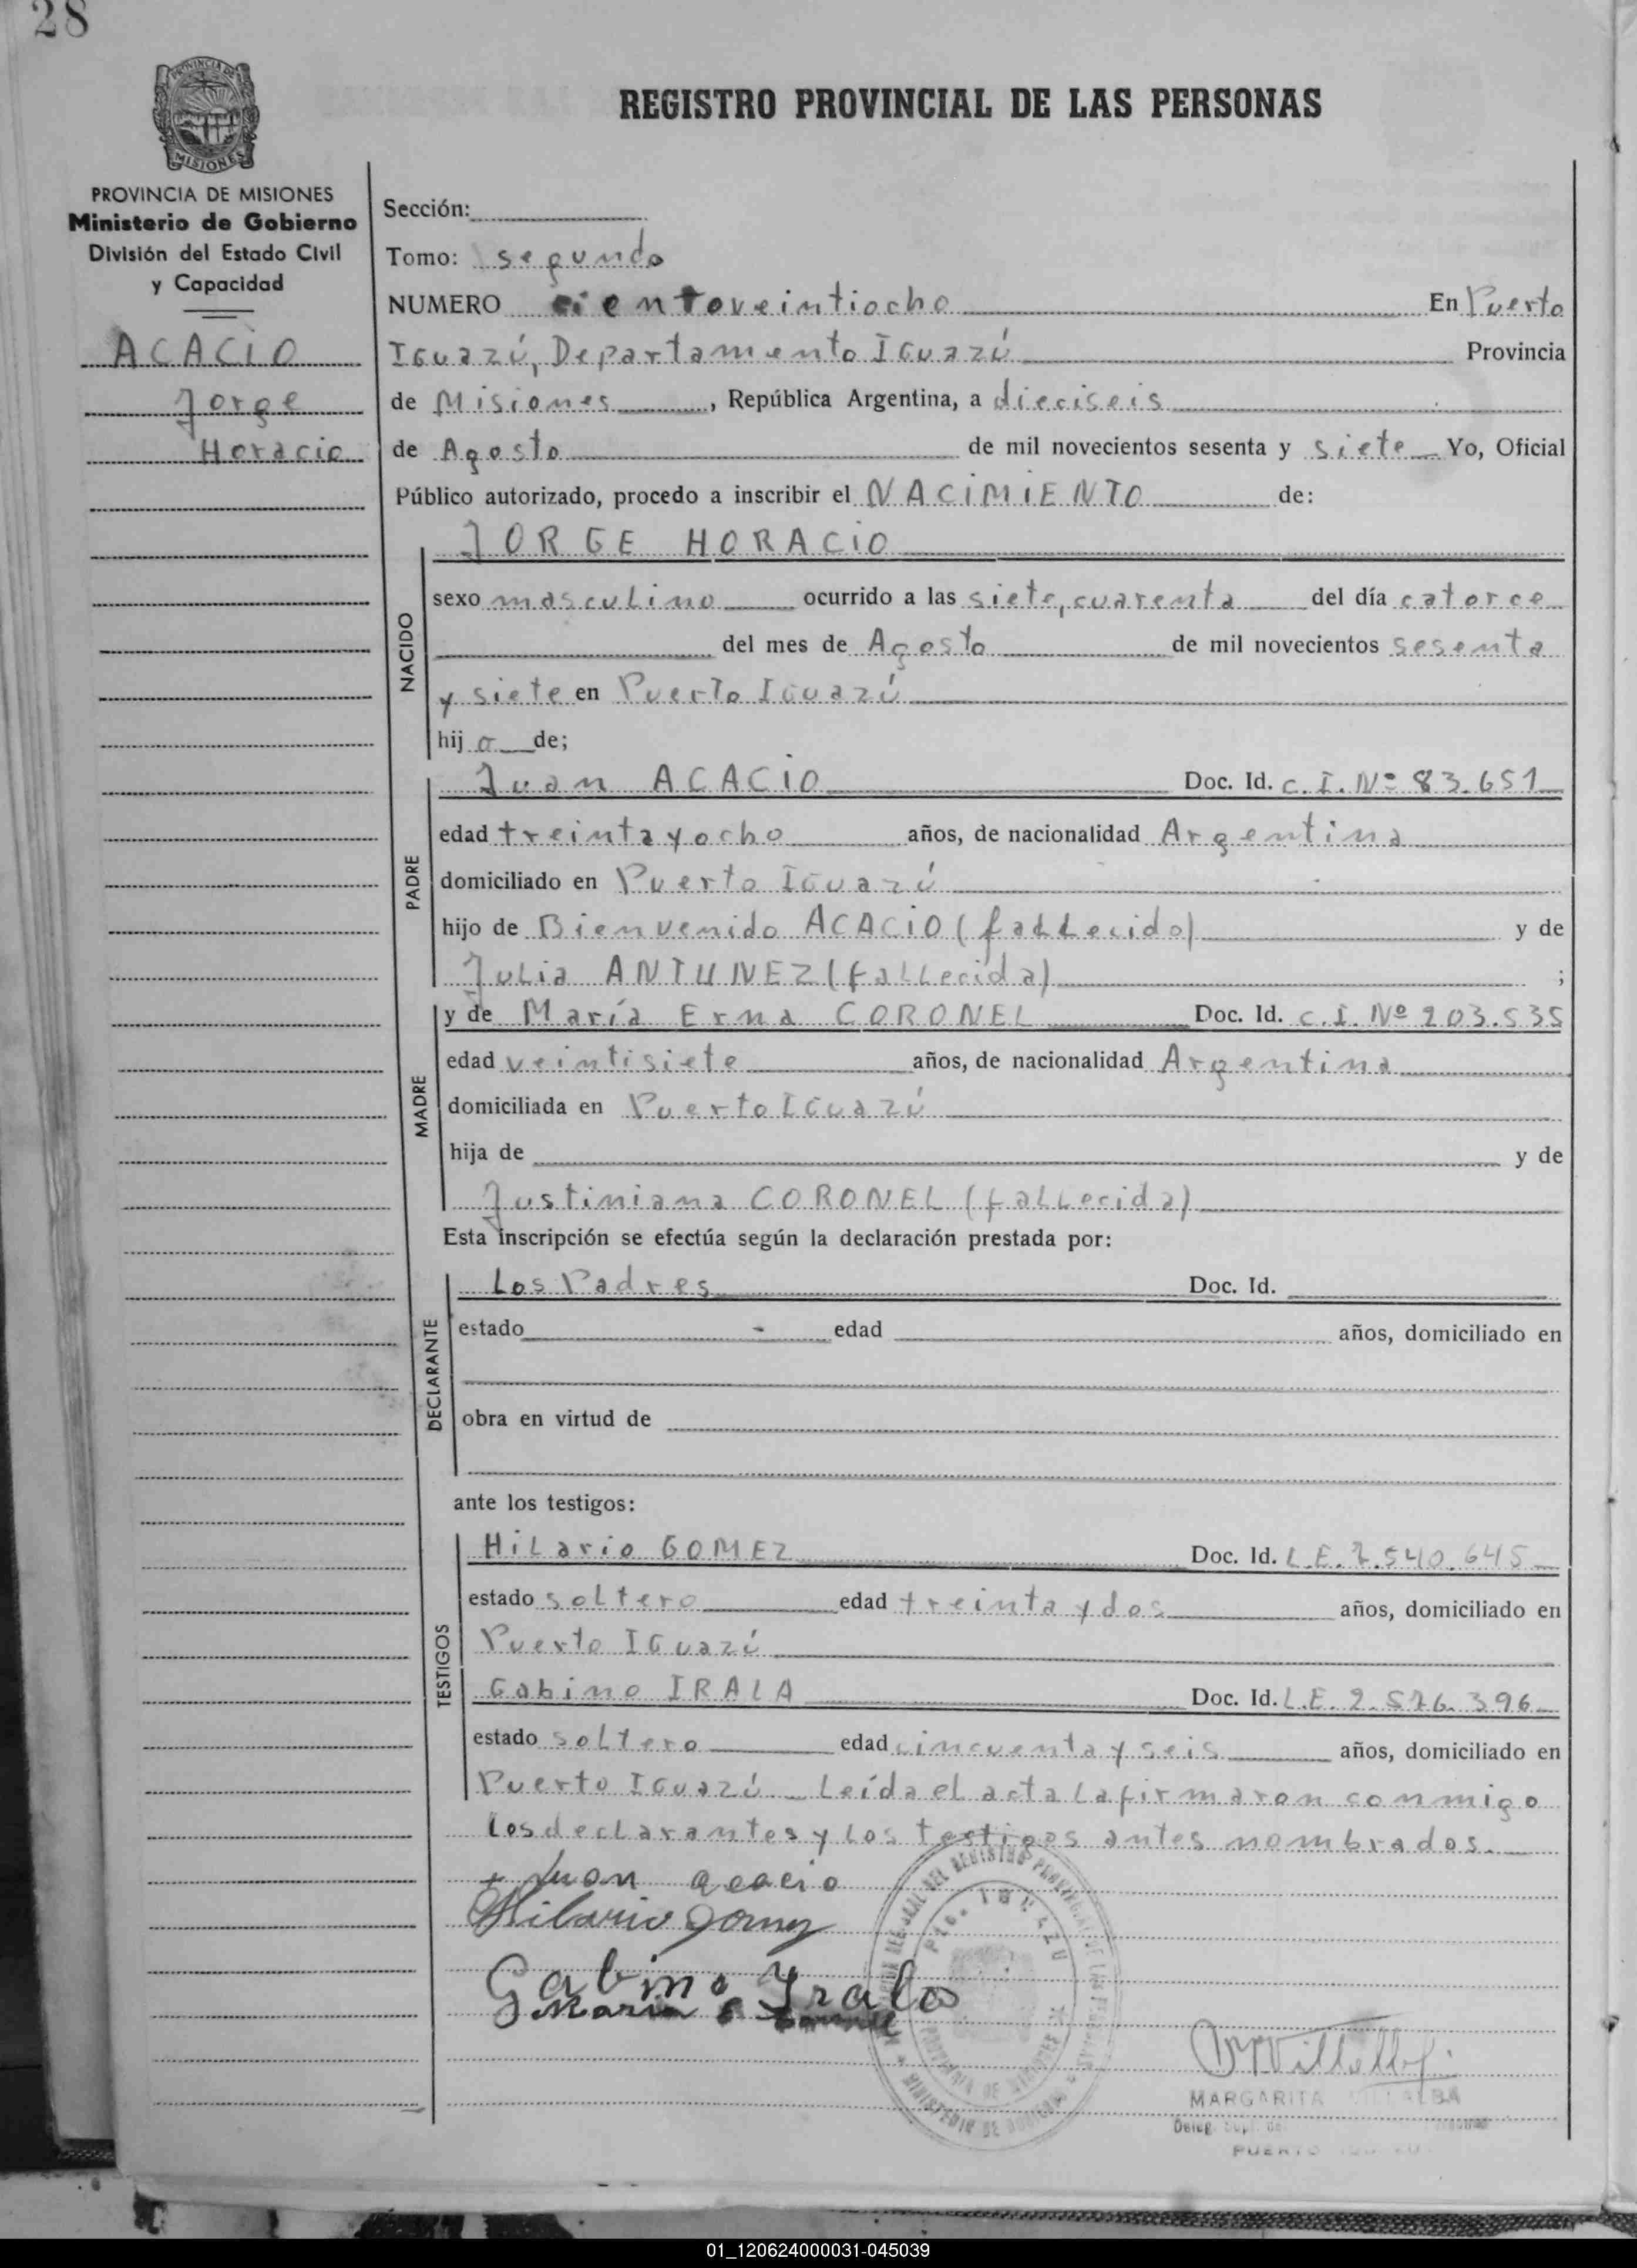 28
PROVINCIA DE
MISIONES
REGISTRO PROVINCIAL DE LAS PERSONAS
PROVINCIA DE MISIONES
Ministerio de Gobierno
División del Estado Civil
y Capacidad
ACACIO
Jorge
Horacio
Sección:
Tomo: segundo
NUMERO cientoveintiocho En Puerto
Iguazú, Departamento Iguazú Provincia
de Misiones, República Argentina, a dieciseis
de Agosto de mil novecientos sesenta y siete Yo, Oficial
Público autorizado, procedo a inscribir el NACIMIENTO de:
JORGE HORACIO
NACIDO
sexo masculino ocurrido a las siete, cuarenta del día catorce
del mes de Agosto de mil novecientos sesenta
y siete en Puerto Iguazú
hijo de;
PADRE
Juan ACACIO Doc. Id. C.I. Nº 83.651
edad treinta y ocho años, de nacionalidad Argentina
domiciliado en Puerto Iguazú
hijo de Bienvenido ACACIO (fallecido) y de
Julia ANTUNEZ (fallecida) ;
MADRE
y de María Erma CORONEL Doc. Id. C.I. Nº 203.535
edad veintisiete años, de nacionalidad Argentina
domiciliada en Puerto Iguazú
hija de y de
Justiniana CORONEL (fallecida)
Esta inscripción se efectúa según la declaración prestada por:
DECLARANTE
Los Padres Doc. Id.
estado edad años, domiciliado en
obra en virtud de
ante los testigos:
TESTIGOS
Hilario GOMEZ Doc. Id. L.E. 7.540.645
estado soltero edad treinta y dos años, domiciliado en
Puerto Iguazú
Gabino IRALA Doc. Id. L.E. 2.576.396
estado soltero edad cincuenta y seis años, domiciliado en
Puerto Iguazú Leída el acta la firmaron conmigo
los declarantes y los testigos antes nombrados.
Juan acacio
Hilario Gomez
Gabino Yrala
Maria E
MARGARITA VILLALBA
PUERTO
01_120624000031-045039